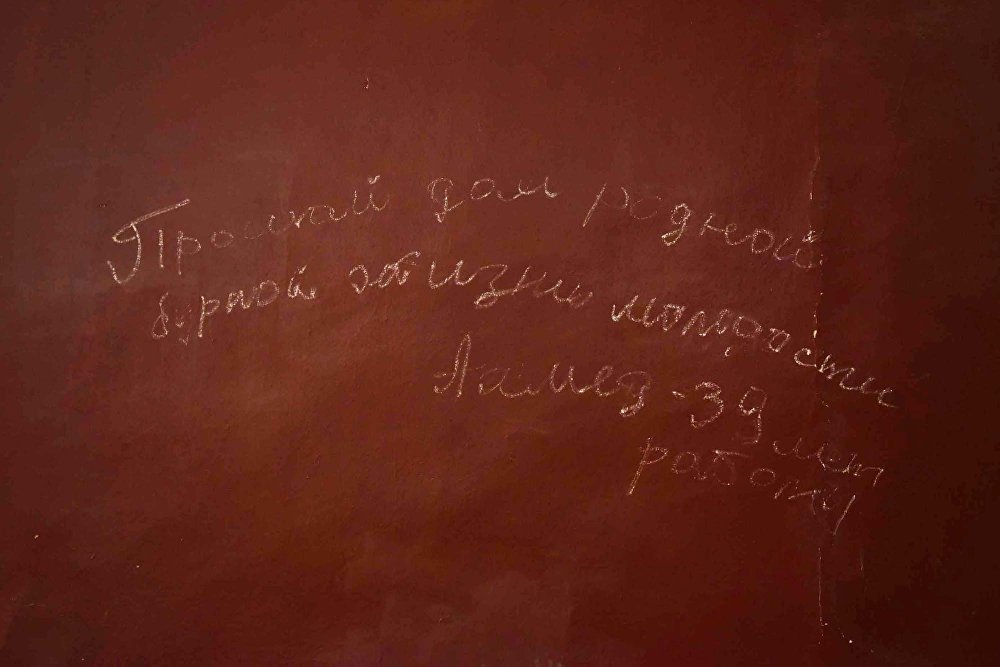 Прощай дом родной
бурной жизни молодости
Ламед - 39 лет
работы